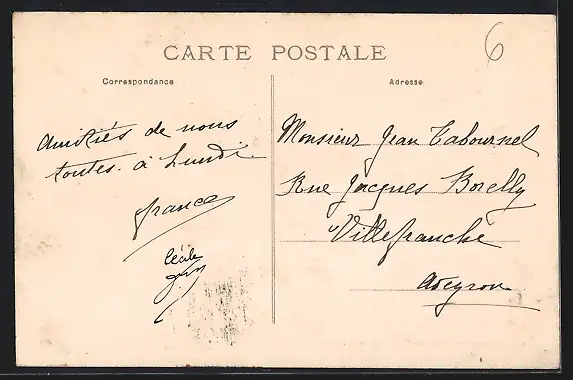 CARTE POSTALE
6
Correspondance
Amitiés de nous
toutes. à Lundi
France
Cécile
Adresse
Monsieur Jean Tabournel
Rue Jacques Borelly
Villefranche
Aveyron